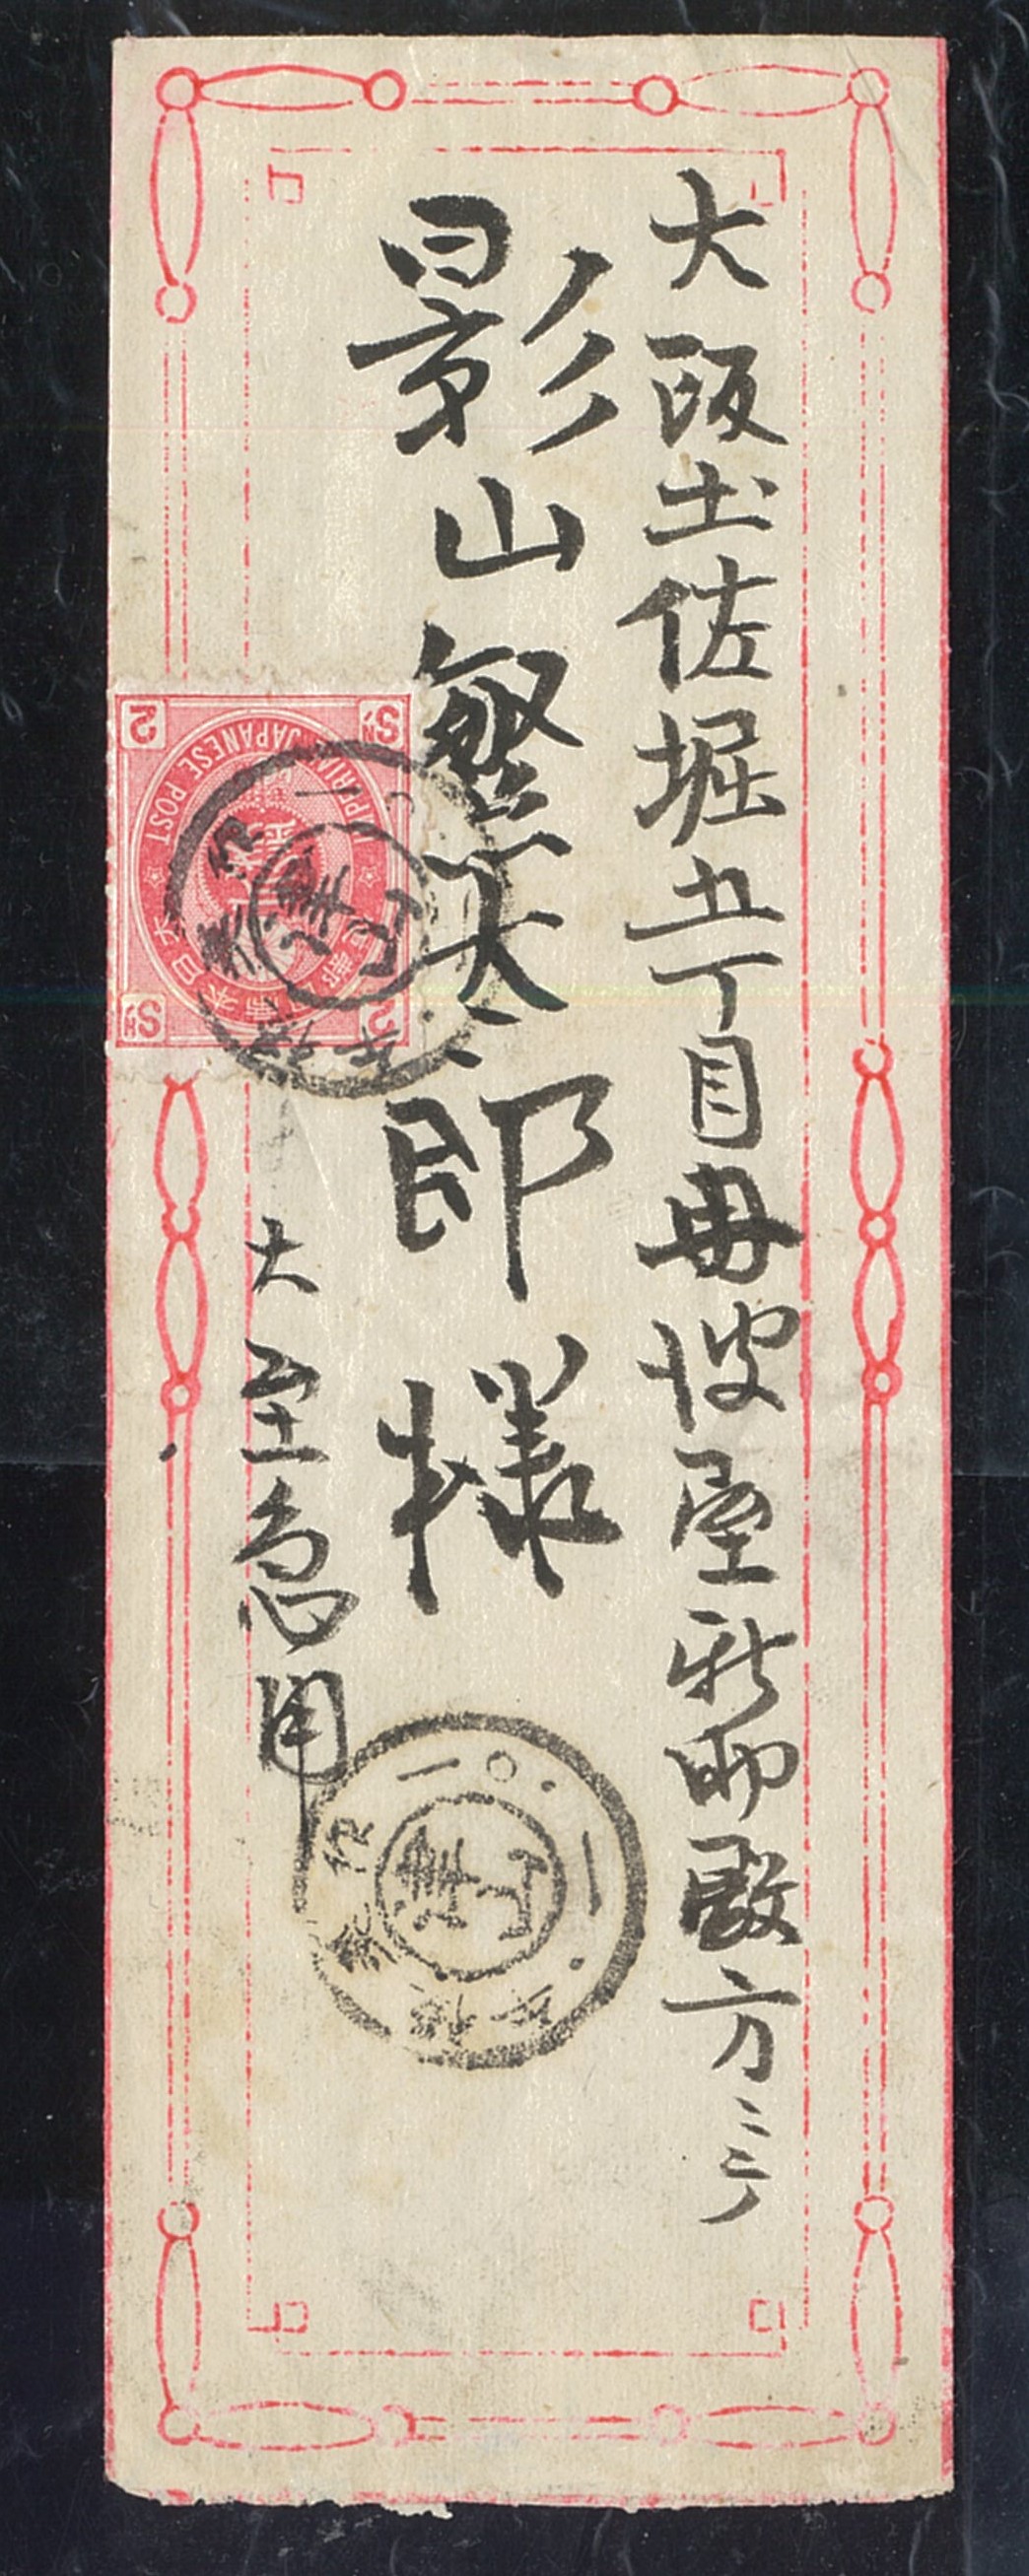 大阪土佐堀五丁目丹波屋新助殿方ニテ
影山繁太郎様
大至急用
IMPERIAL JAPANESE POST
2 SN